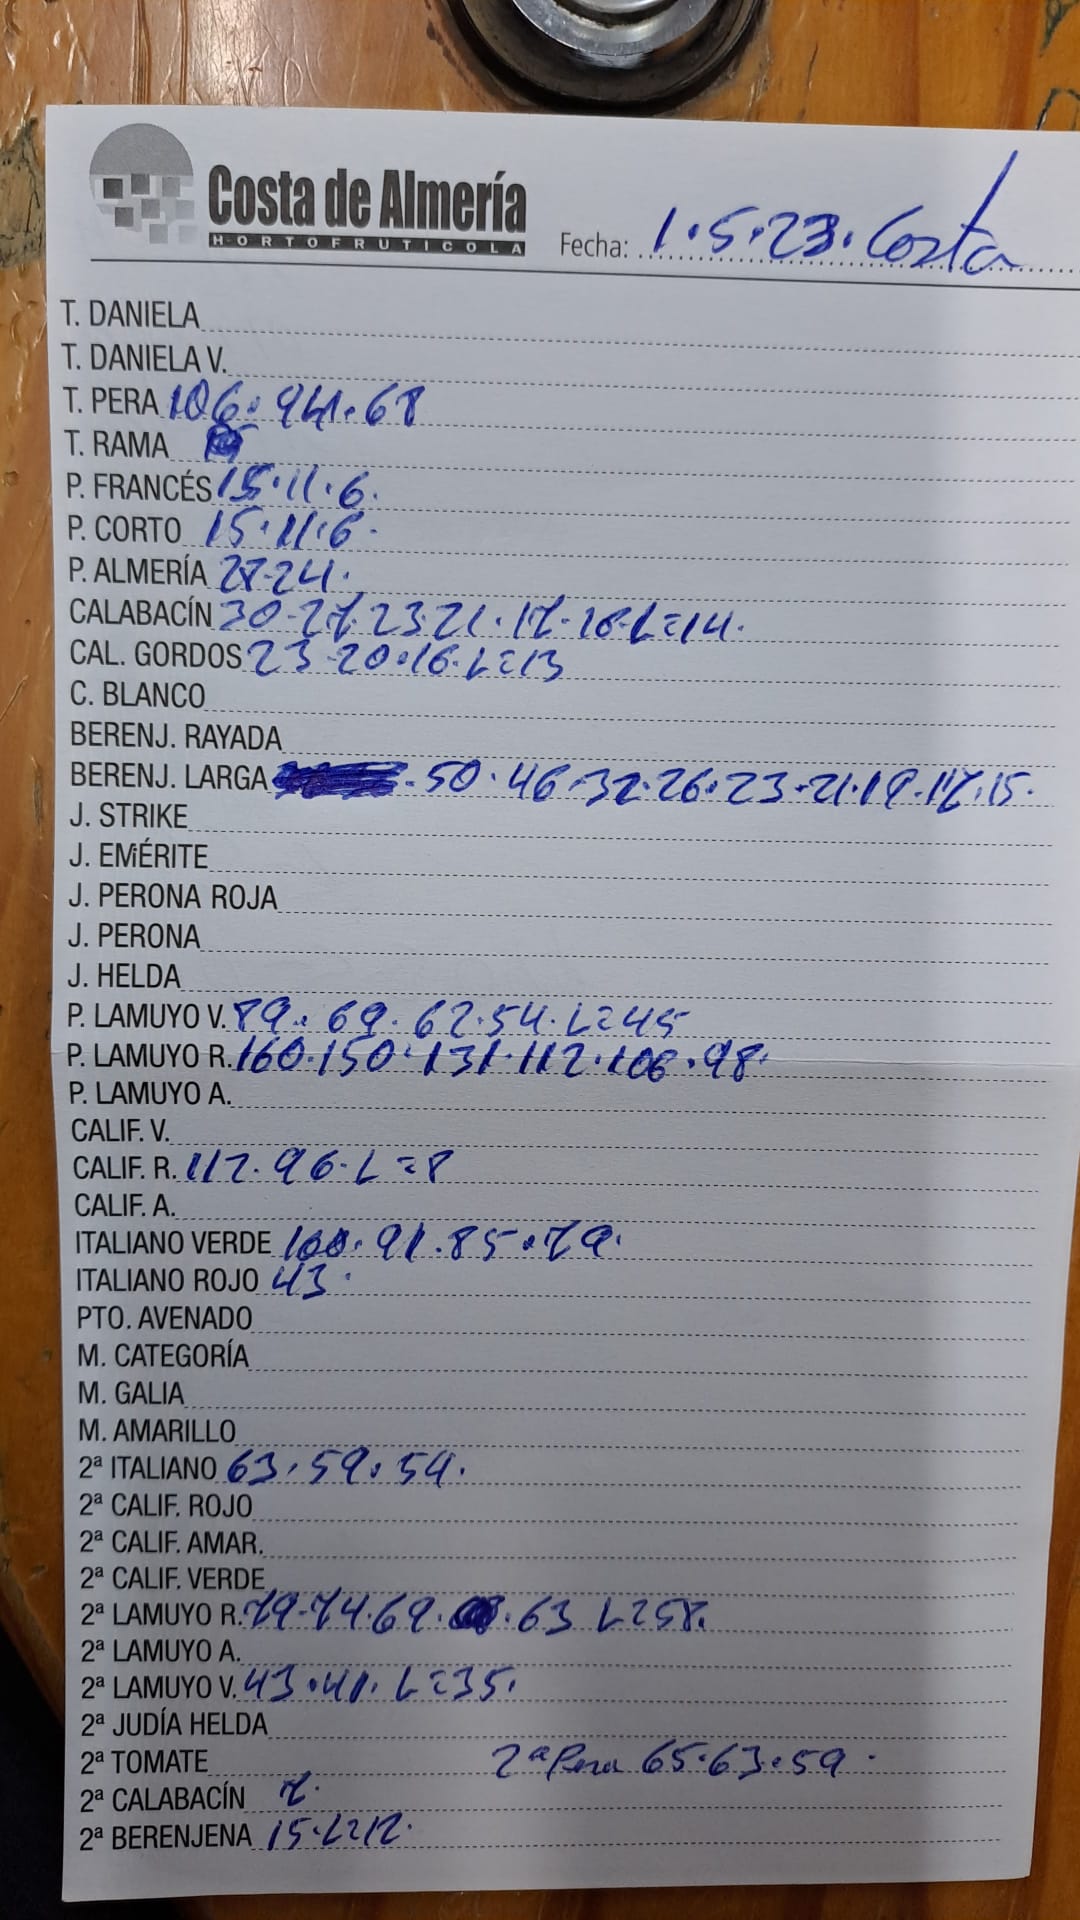 Costa de Almería
HORTOFRUTICOLA
Fecha: 1.5.23. Costa
T. DANIELA
T. DANIELA V.
T. PERA 106. 941. 68
T. RAMA
P. FRANCÉS 15.11.6.
P. CORTO 15.11.6.
P. ALMERÍA 27-24.
CALABACÍN 30-27.23.21.17-16-L=14.
CAL. GORDOS 23-20.16.L=13
C. BLANCO
BERENJ. RAYADA
BERENJ. LARGA .50.46-32.26.23.21.19.17.15.
J. STRIKE
J. EMÉRITE
J. PERONA ROJA
J. PERONA
J. HELDA
P. LAMUYO V. 89.69.62.54.L=45
P. LAMUYO R. 160.150.131.112.106.98.
P. LAMUYO A.
CALIF. V.
CALIF. R. 112.96.L=8
CALIF. A.
ITALIANO VERDE 100.91.85.79.
ITALIANO ROJO 43.
PTO. AVENADO
M. CATEGORÍA
M. GALIA
M. AMARILLO
2ª ITALIANO 63.59.54.
2ª CALIF. ROJO
2ª CALIF. AMAR.
2ª CALIF. VERDE
2ª LAMUYO R. 79-74.69. .63 L=58.
2ª LAMUYO A.
2ª LAMUYO V. 43.41. L=35.
2ª JUDÍA HELDA
2ª TOMATE 2ª Pera 65.63.59.
2ª CALABACÍN 7.
2ª BERENJENA 15.L=12.